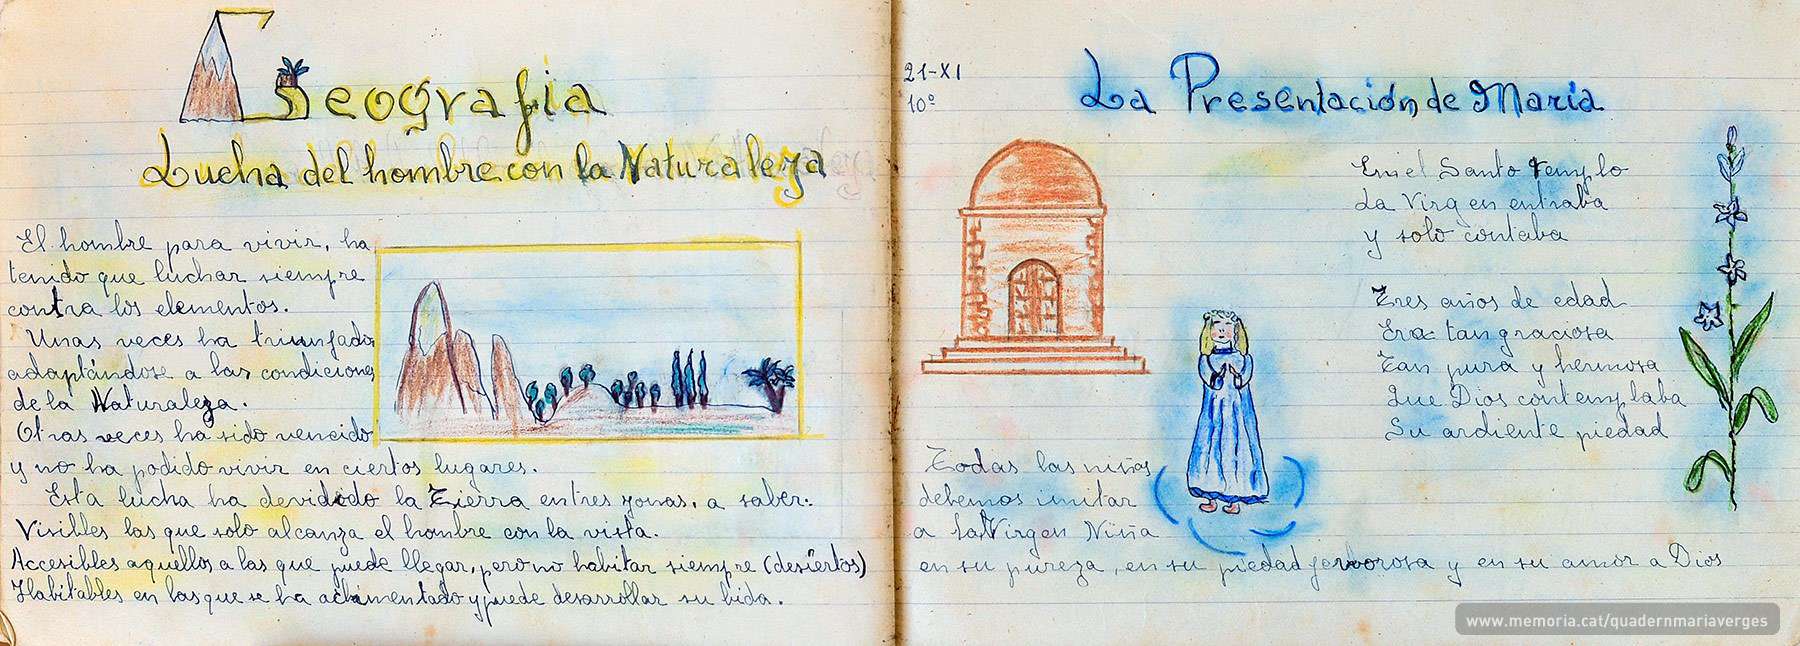 Geografia
Lucha del hombre con la Naturaleza
El hombre para vivir, ha
tenido que luchar siempre
contra los elementos.
Unas veces ha triunfado
adaptándose a las condiciones
de la Naturaleza.
Otras veces ha sido vencido
y no ha podido vivir en ciertos lugares.
Esta lucha ha devidido la Tierra en tres zonas, a saber:
Visibles las que solo alcanza el hombre con la vista.
Accesibles aquellos a las que puede llegar, pero no habitar siempre (desiertos)
Habitables en las que se ha aclimentado y puede desarrollar su bida.
21-XI
10º
La Presentación de Maria
En el Santo templo
La Virgen entraba
y solo contaba
Tres años de edad
Era tan graciosa
Tan pura y hermosa
Que Dios contemplaba
Su ardiente piedad
Todas las niñas
debemos imitar
a la Virgen Niña
en su pureza, en su piedad fervorosa y en su amor a Dios
www.memoria.cat/quadernmariaverges